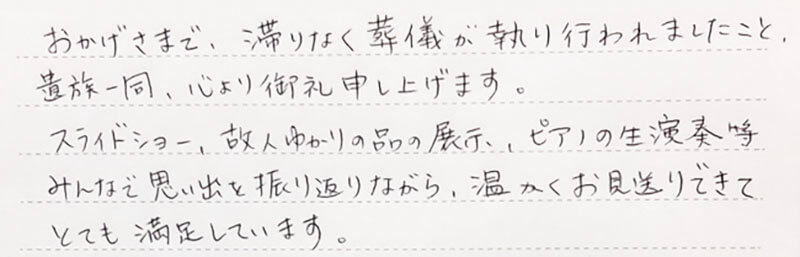 おかげさまで、滞りなく葬儀が執り行われましたこと、
遺族一同、心より御礼申し上げます。
スライドショー、故人ゆかりの品の展示、ピアノの生演奏等
みんなで思い出を振り返りながら、温かくお見送りできて
とても満足しています。